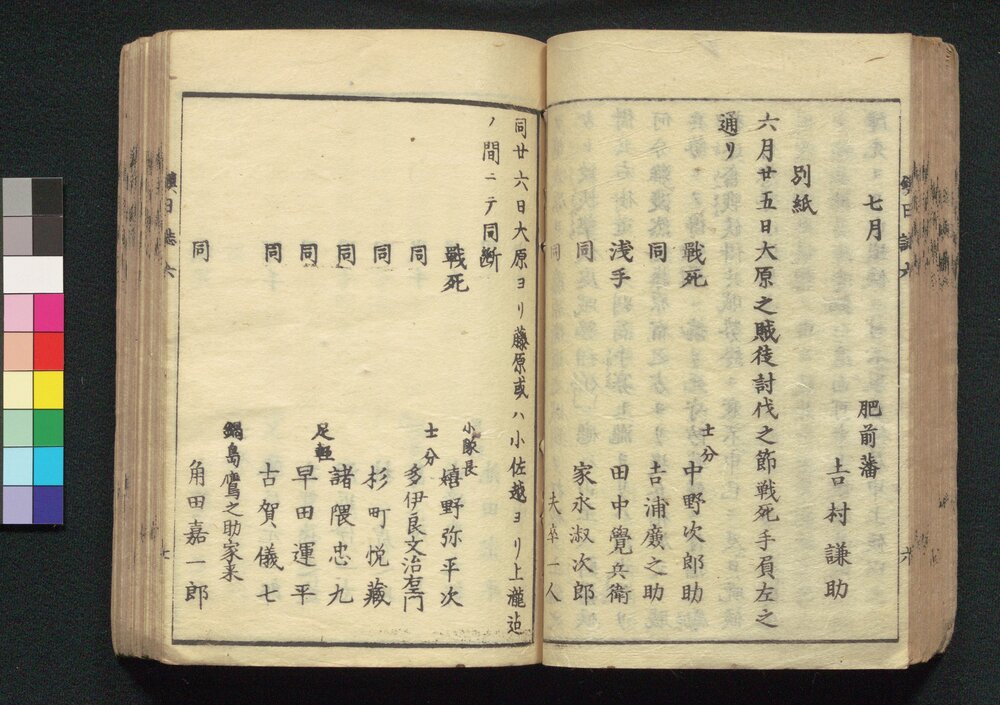 七月
肥前藩
吉村謙助
別紙
六月廿五日大原之賊徒討伐之節戦死手負左之
通リ
戰死 士分 中野次郎助
同 吉浦廣之助
浅手 田中覺兵衛
同 家永淑次郎
同 夫卒一人
同廿六日大原ヨリ藤原或ハ小佐越ヨリ上瀧迠
ノ間ニテ同断
戰死 小隊長 嬉野弥平次
同 士分 多伊良文治右エ門
同 杉町悦藏
同 諸隈忠九
同 足輕 早田運平
同 古賀儀七
鍋島鷹之助家来
同 角田嘉一郎
日誌 六
七